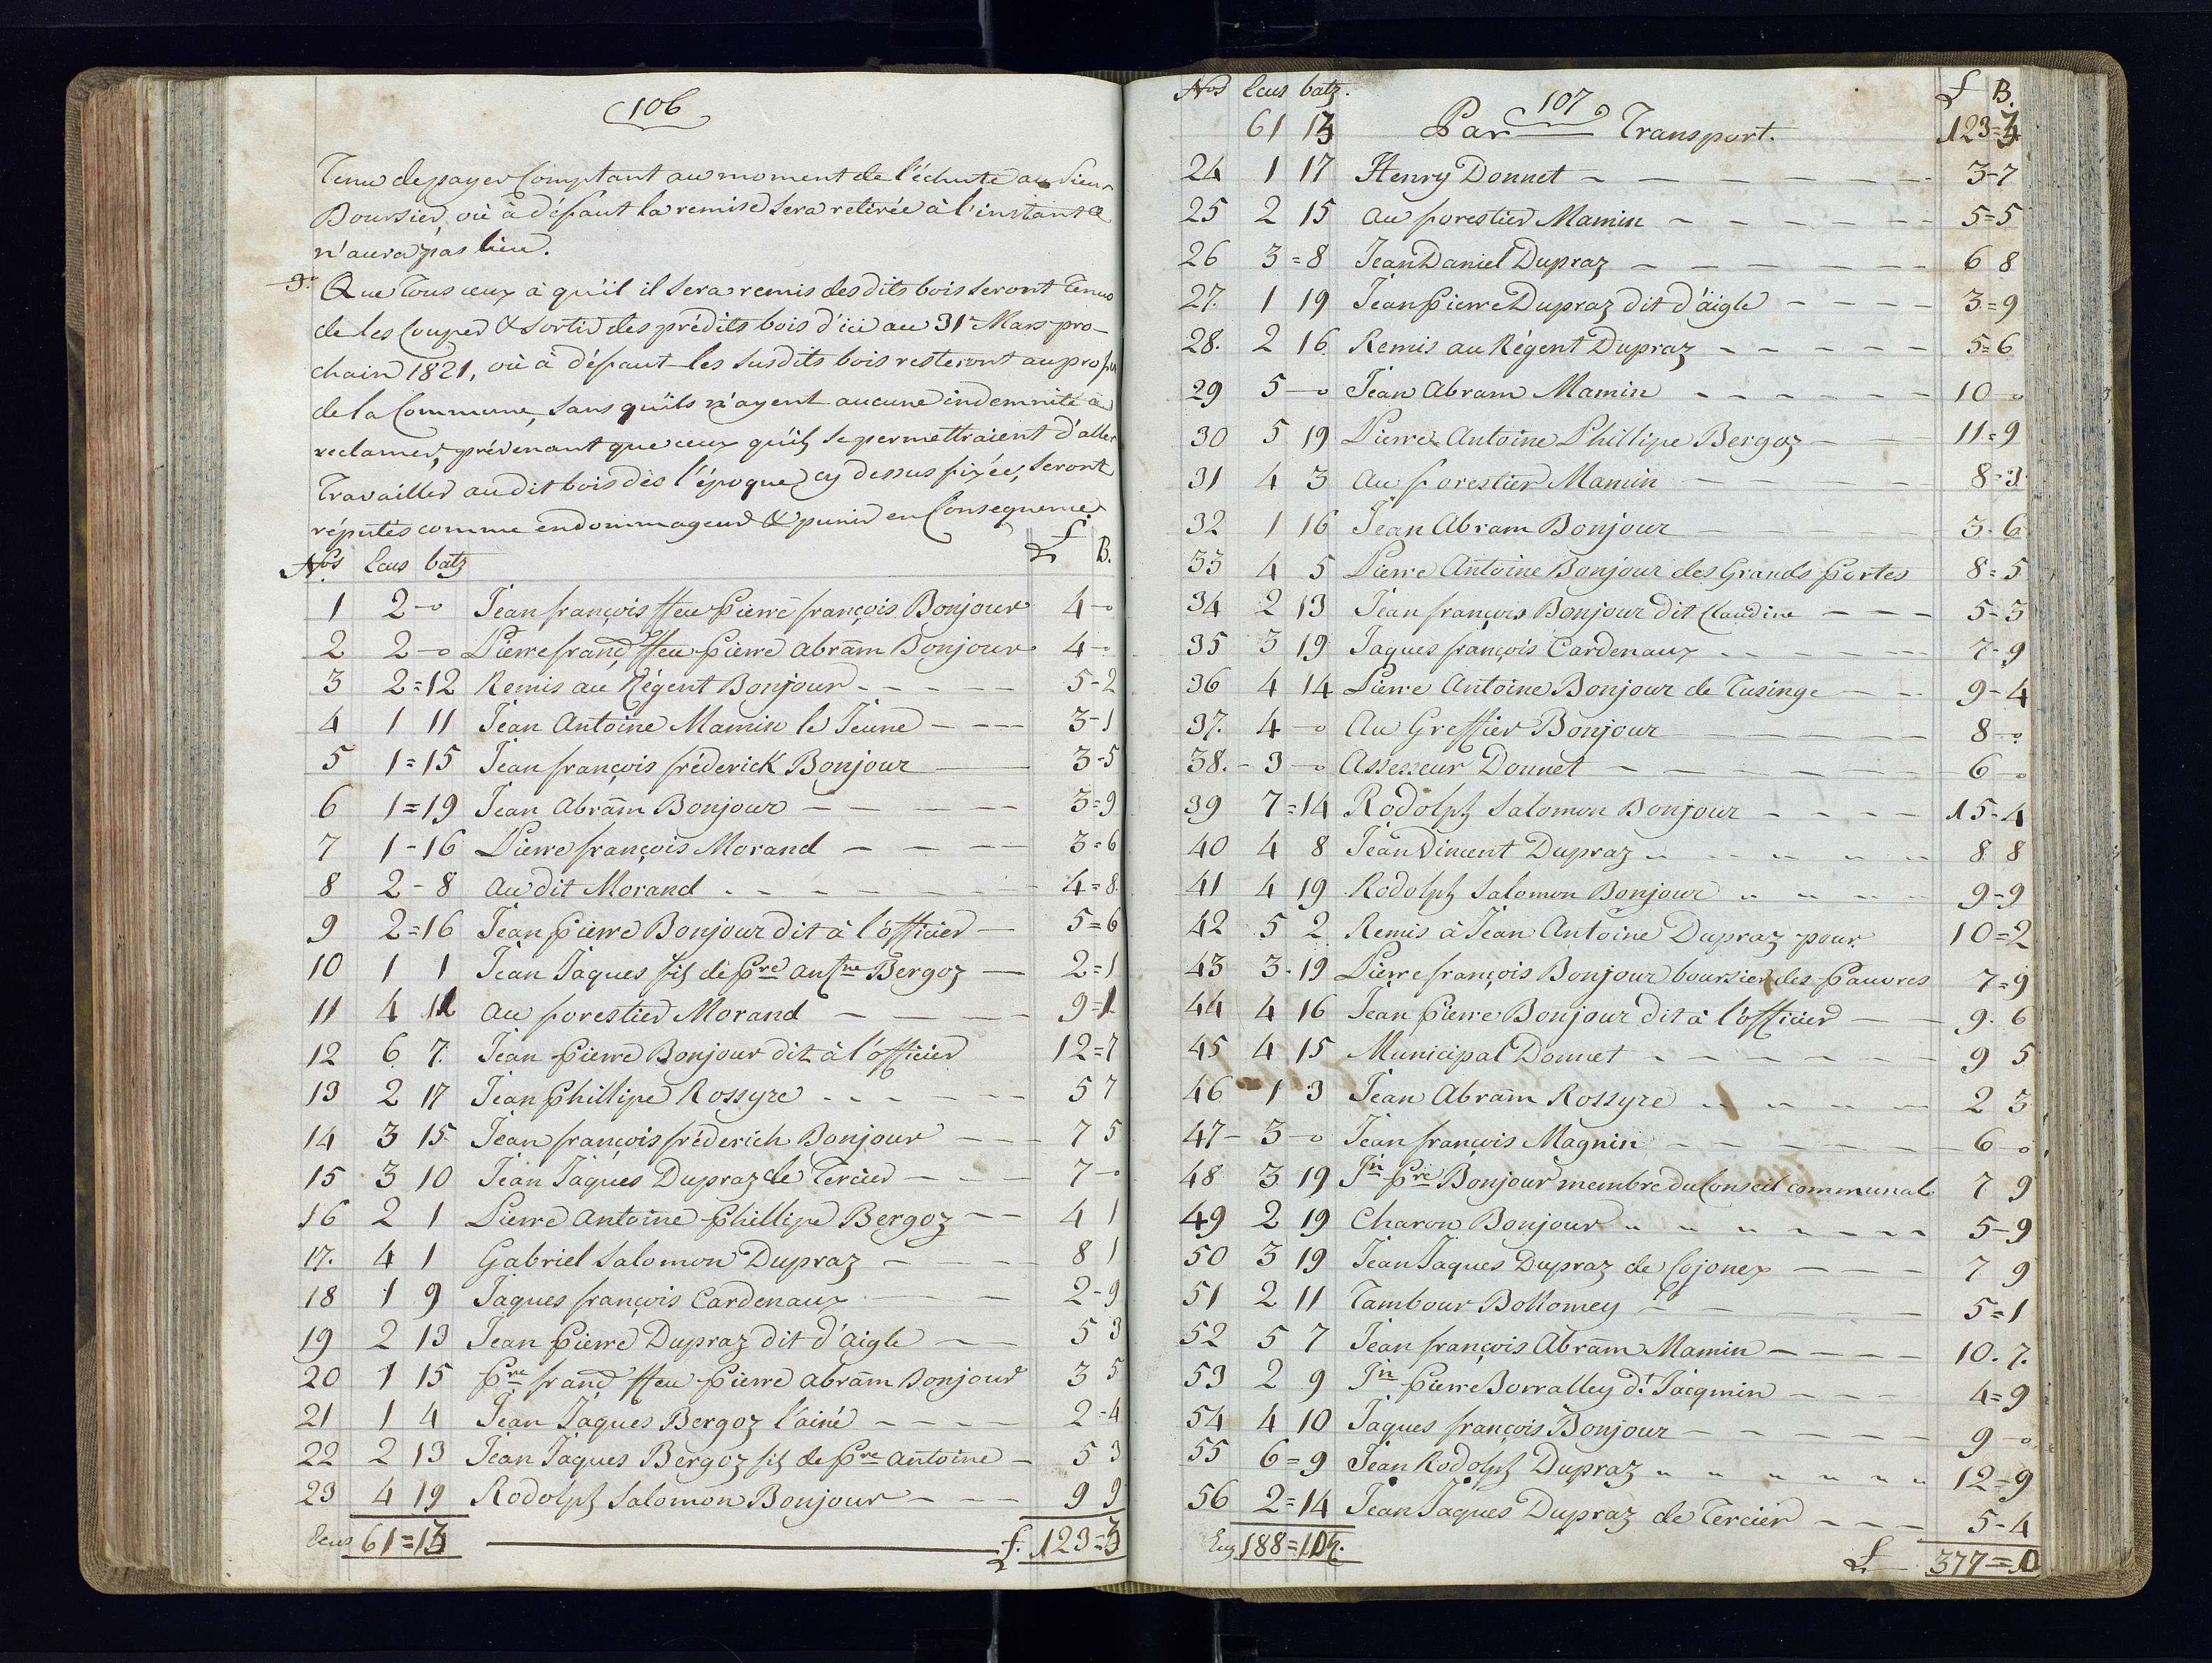 106
Tenu de payer Comptant au moment de l'échute au Sieur
Boursier, où à défaut la remise sera retirée à l'instant &
n'aura pas lieu.
3° Que Tous ceux à qu'il il sera remis des dits bois seront Tenus
de les Couper & sortir des prédits bois d'ici au 31r Mars pro-
chain 1821, où à défaut les susdits bois resteront au profit
de la Commune, sans qu'ils n'ayent aucune indemnité à
reclamer, prévenant que ceux qu'ils se permettraient d'aller
Travailler au dit bois dès l'époque cy dessus fixée, seront
réputés comme endommageur & punis en Consequence.
Nos Ecus batz £ B.
1 2-0 Jean françois ffeu Pierre françois Bonjour 4-0
2 2-0 Pierre franç ffeu Pierre Abram Bonjour 4-0
3 2=12 Remis au Régent Bonjour 5-2
4 1 11 Jean Antoine Mamin le Jeune 3-1
5 1=15 Jean françois fréderick Bonjour 3-5
6 1=19 Jean Abram Bonjour 3=9
7 1-16 Pierre françois Morand 3=6
8 2-8 Au dit Morand 4=8
9 2=16 Jean Pierre Bonjour dit à l'officier 5=6
10 1 1 Jean Jaques fils de Pre Antne Bergoz 2=1
11 4 11 Au forestier Morand 9-1
12 6 7. Jean Pierre Bonjour dit à l'officier 12=7
13 2 17 Jean Phillipe Rossyre 5 7
14 3 15 Jean françois fréderich Bonjour 7 5
15 3 10 Jean Jaques Dupraz de Tercier 7-0
16 2 1 Pierre Antoine Phillipe Bergoz 4 1
17. 4 1 Gabriel Salomon Dupraz 8 1
18 1 9 Jaques françois Cardenaux 2-9
19 2 13 Jean Pierre Dupraz dit d'Aigle 5 3
20 1 15 Pre franç ffeu Pierre Abram Bonjour 3 5
21 1 4 Jean Jaques Bergoz l'ainé 2-4
22 2 13 Jean Jaques Bergoz fils de Pre Antoine 5 3
23 4 19 Rodolph Salomon Bonjour 9 9
Ecus 61=13 £. 123=3
107
Nos Ecus batz. £ B.
61 13 Par Transport. 123=3
24 1 17 Henry Donnet 3-7
25 2 15 Au forestier Mamin 5=5
26 3=8 Jean Daniel Dupraz 6 8
27. 1 19 Jean Pierre Dupraz dit d'Aigle 3=9
28. 2 16 Remis au Régent Dupraz 5=6
29 5-0 Jean Abram Mamin 10-0
30 5 19 Pierre Antoine Phillipe Bergoz 11=9
31 4 3 Au forestier Mamin 8=3
32 1 16 Jean Abram Bonjour 3-6
33 4 5 Pierre Antoine Bonjour des Grands Portes 8=5
34 2 13 Jean françois Bonjour dit Claudine 5-3
35 3 19 Jaques françois Cardenaux 7-9
36 4 14 Pierre Antoine Bonjour de Tusinge 9-4
37. 4-0 Au Greffier Bonjour 8-0
38. 3-0 Assesseur Donnet 6-0
39 7=14 Rodolph Salomon Bonjour 15-4
40 4 8 Jean Vincent Dupraz 8 8
41 4 19 Rodolph Salomon Bonjour 9-9
42 5 2 Remis à Jean Antoine Dupraz pour 10=2
43 3-19 Pierre françois Bonjour boursier des Pauvres 7=9
44 4 16 Jean Pierre Bonjour dit à l'officier 9-6
45 4 15 Municipal Donnet 9 5
46 1 3 Jean Abram Rossyre 2 3
47 3-0 Jean françois Magnin 6-0
48 3 19 Jn Pre Bonjour membre du Conseil communal 7 9
49 2 19 Charon Bonjour 5-9
50 3 19 Jean Jaques Dupraz de Cojonex 7 9
51 2 11 Tambour Bottomey 5=1
52 5 7 Jean françois Abram Mamin 10.7.
53 2 9 Jn Pierre Borralley dt Jacqmin 4=9
54 4 10 Jaques françois Bonjour 9-0
55 6=9 Jean Rodolph Dupraz 12=9
56 2=14 Jean Jaques Dupraz de Tercier 5-4
Ecus £ 377=